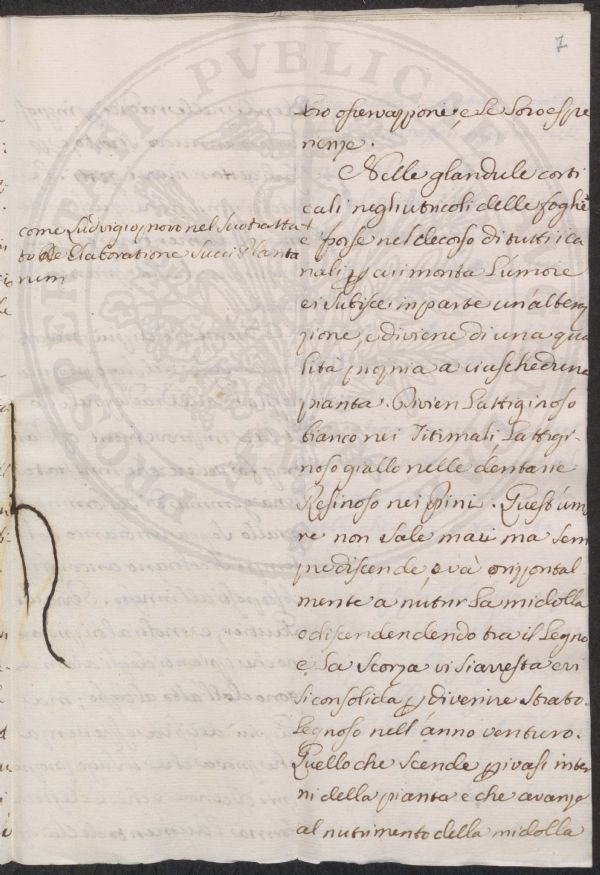 7
tro osservazzioni, e le loro espe
rienze.
Nelle glandule corti
cali negli utricoli delle foglie
e forse nel decorso di tutti i ca
nali per cui monta L'umore
ei subisce in parte un'altera
zione, e diviene di una qua
lità propria a ciascheduna
pianta. Divien Lattiginoso
bianco nei Titimali Lattigi
noso giallo nelle
Resinoso nei Pini. Quest'umo
re non sale mai ma sem
pre discende o và orizzontal
mente a nutrir La midolla
o discendendendo tra il Legno
e La scorza vi si arresta e vi
si consolida per divenire strato
Legnoso nell'anno venturo.
Quello che scende per i vasi inter
ni della pianta e che avanza
al nutrimento della midolla
come Ludvigio provò nel suo tratta
to De Elaboratione Succi Planta
rum
PROSPERITATI PUBLICAE